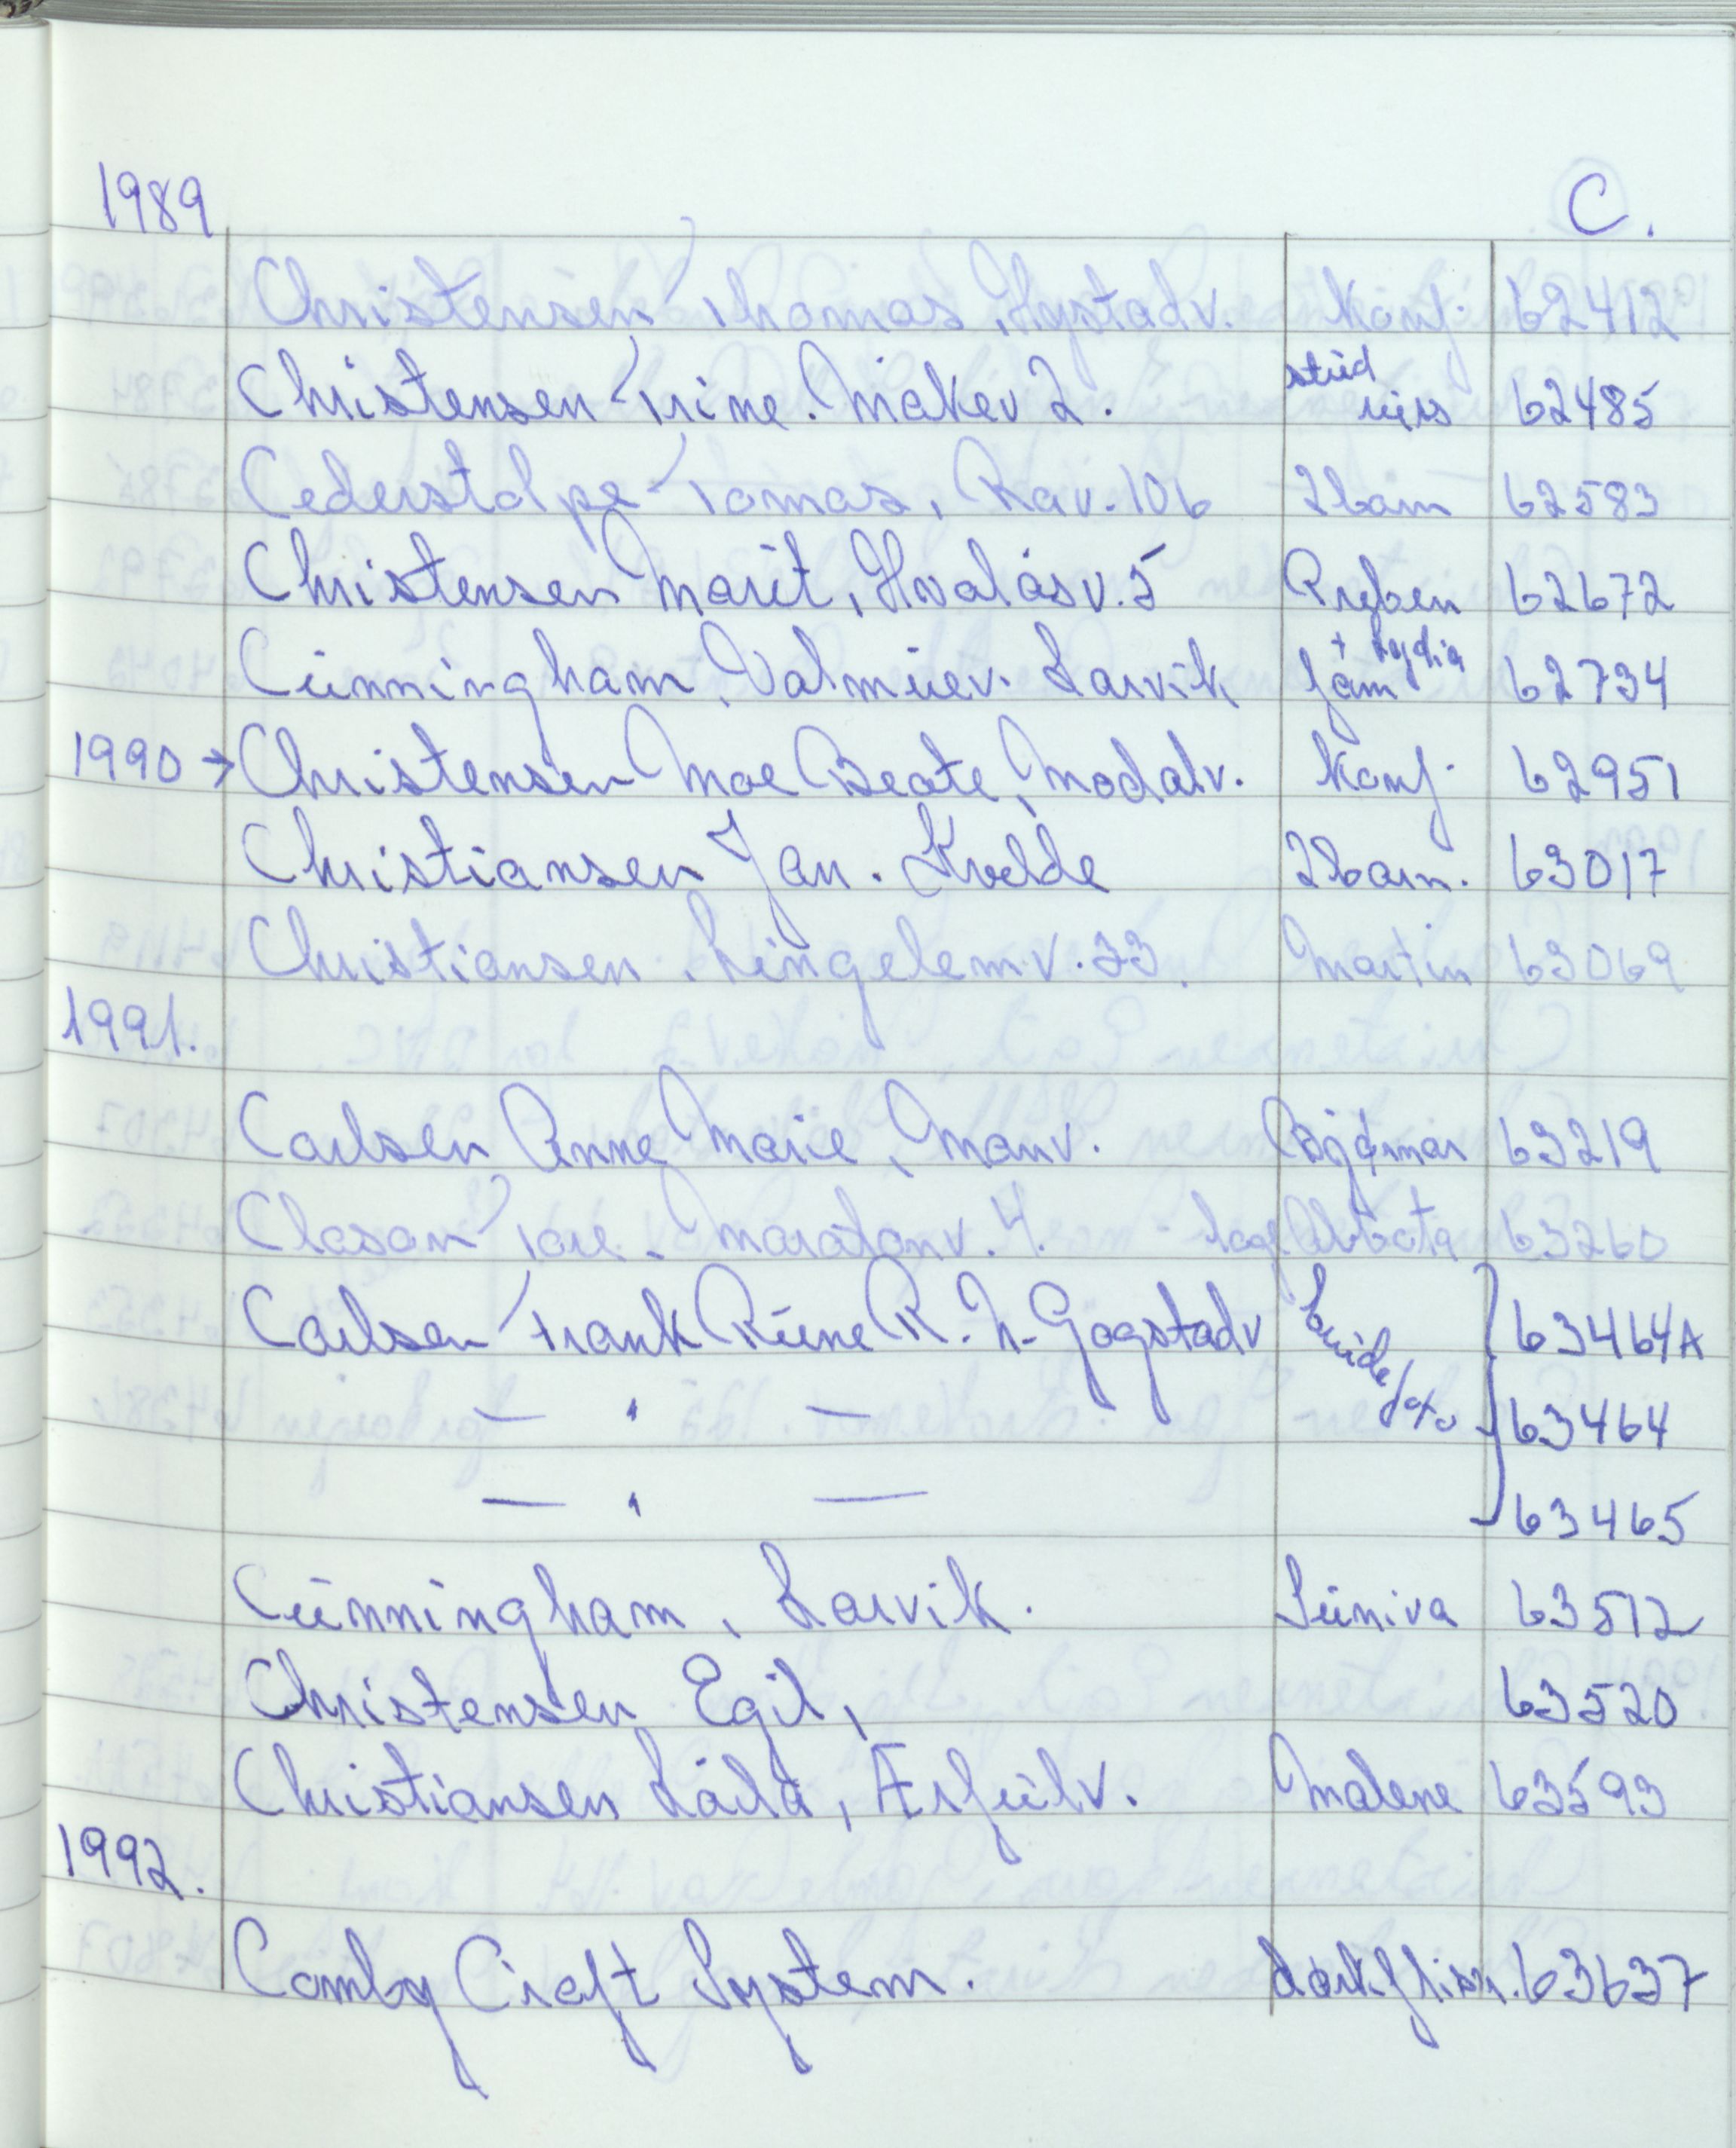 1989 C.
Christensen Thomas, Nystadv. Konf. 62412
Christensen Trine. Måkev 2. stud urs 62485
Cederstolpe Tomas, Rav. 106 2 barn 62583
Christensen Marit, Hvalåsv. 5 Preben 62672
Cunningham, Valmuev. Larvik fam + Lydia 62734
1990 → Christensen Moe Beate, Modalv. Konf. 62951
Christiansen Jan. Kvelde 2 barn. 63017
Christiansen Lingelemv. 33. Martin 63069
1991.
Carlsen Anne Marie, Manv. 63219
Clason Tore. Maratonv. 4. 63260
Carlsen Frank Rune R. N. Gogstadv Brude foto 63464A
— " — 63464
— " — 63465
Cunningham, Larvik. Sunniva 63512
Christensen Egil, 63520
Christiansen Lårdal, Ærfuglv. Malene 63593
1992.
Comby Craft System. 63637